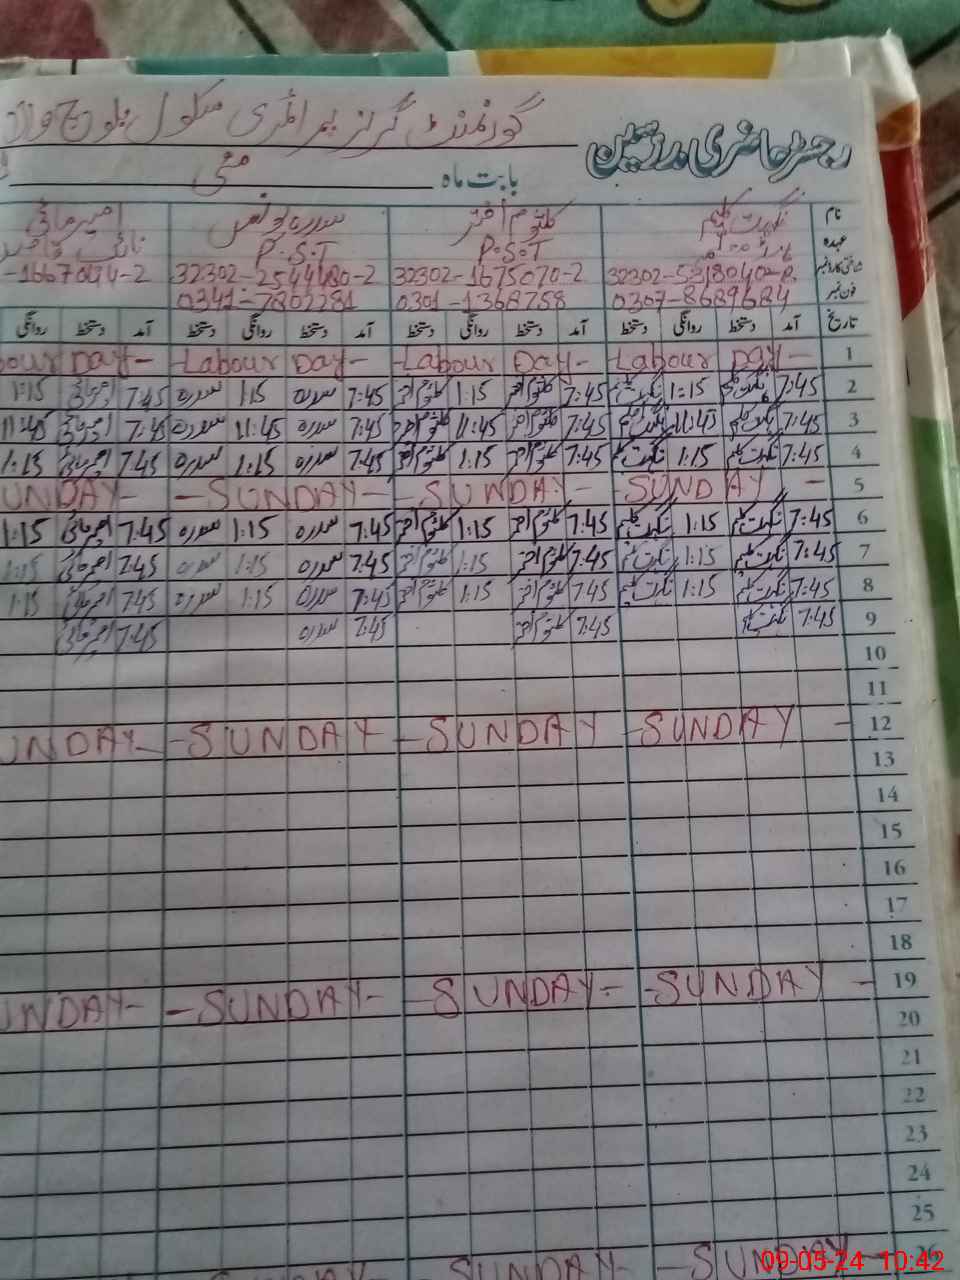 رجسٹر حاضری مدرسین گورنمنٹ گرلز پرائمری سکول بلوچ
بابت ماہ مئی
نام نگہت کلثوم اختر سدرہ یونس امیر مائی
عہدہ P.S.T P.S.T نائب قاصد
شناختی کارڈ نمبر 32302-1675070-2 32302-2544480-2 -1667044-2
فون نمبر 0307-8689684 0301-1368758 0341-7802281
تاریخ آمد دستخط روانگی دستخط آمد دستخط روانگی دستخط آمد دستخط روانگی دستخط آمد دستخط روانگی
1 Labour Day - Labour Day - Labour Day - bour Day -
2 7:45 1:15 7:45 کلثوم اختر 1:15 کلثوم اختر 7:45 سدرہ 1:15 سدرہ 7:45 امیر مائی 1:15
3 7:45 11:45 7:45 کلثوم اختر 11:45 کلثوم اختر 7:45 سدرہ 11:45 سدرہ 7:45 امیر مائی 11:45
4 7:45 1:15 7:45 کلثوم اختر 1:15 کلثوم اختر 7:45 سدرہ 1:15 سدرہ 7:45 امیر مائی 1:15
5 - SUNDAY - SUNDAY - - SUNDAY - UNDAY -
6 7:45 1:15 7:45 کلثوم اختر 1:15 کلثوم اختر 7:45 سدرہ 1:15 سدرہ 7:45 امیر مائی 1:15
7 7:45 1:15 7:45 کلثوم اختر 1:15 کلثوم اختر 7:45 سدرہ 1:15 سدرہ 7:45 امیر مائی 1:15
8 7:45 1:15 7:45 کلثوم اختر 1:15 کلثوم اختر 7:45 سدرہ 1:15 سدرہ 7:45 امیر مائی 1:15
9 7:45 7:45 کلثوم اختر 7:45 سدرہ 7:45 امیر مائی
10
11
12 - SUNDAY - SUNDAY - SUNDAY - UNDAY -
13
14
15
16
17
18
19 - SUNDAY - SUNDAY - - SUNDAY - UNDAY -
20
21
22
23
24
25
26 - SUNDAY - SUNDAY - SUNDAY
09-05-24 10:42